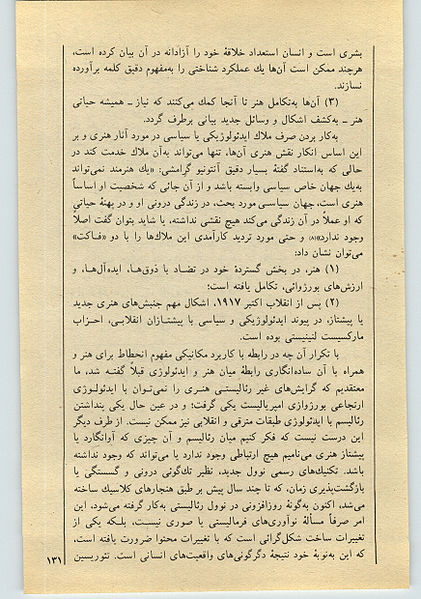 بشری است و انسان استعداد خلاقهٔ خود را آزادانه در آن بیان کرده است،
هرچند ممکن است آن‌ها یك عملکرد شناختی را به‌مفهوم دقیق کلمه برآورده
نسازند.
(۳) آن‌ها به‌تکامل هنر تا آنجا کمك می‌کنند که نیاز ـ همیشه حیاتی
هنر ـ به‌کشف اشکال و وسائل جدید بیانی برطرف گردد.
به‌کار بردن صرف ملاك ایدئولوژیکی یا سیاسی در مورد آثار هنری و بر
این اساس انکار نقش هنری آن‌ها، تنها می‌تواند به‌آن ملاك خدمت کند در
حالی که به‌استناد گفتهٔ بسیار دقیق آنتونیو گرامشی: «یك هنرمند نمی‌تواند
به‌یك جهان خاص سیاسی وابسته باشد و از آن جائی که شخصیت او اساساً
هنری است، جهان سیاسی مورد بحث، در زندگی درونی او و در پهنهٔ حیاتی
که او عملاً در آن زندگی می‌کند هیچ نقشی نداشته، یا شاید بتوان گفت اصلاً
وجود ندارد»(۸) و حتی مورد تردید کارآمدی این ملاك‌ها را با دو «فاکت»
می‌توان نشان داد:
(۱) هنر، در بخش گستردهٔ خود در تضاد با ذوق‌ها، ایده‌آل‌ها، و
ارزش‌های بورژوائی، تکامل یافته است؛
(۲) پس از انقلاب اکتبر ۱۹۱۷، اشکال مهم جنبش‌های هنری جدید
یا پیشتاز، در پیوند ایدئولوژیکی و سیاسی با پیشتازان انقلابی، احزاب
مارکسیست لنینیستی بوده است.
با تکرار آن چه در رابطه با کاربرد مکانیکی مفهوم انحطاط برای هنر و
همراه با آن ساده‌انگاری رابطهٔ میان هنر و ایدئولوژی قبلاً گفته شد، ما
معتقدیم که گرایش‌های غیر رئالیستی هنری را نمی‌توان با ایدئولوژی
ارتجاعی بورژوازی امپریالیست یکی گرفت؛ و در عین حال یکی پنداشتن
رئالیسم با ایدئولوژی طبقات مترقی و انقلابی نیز ممکن نیست. از طرف دیگر
این درست نیست که فکر کنیم میان رئالیسم و آن چیزی که آوانگارد یا
پیشتاز هنری می‌نامیم هیچ ارتباطی وجود ندارد یا می‌تواند که وجود نداشته
باشد. تکنیك‌های رسمی نوول جدید، نظیر تك‌گوئی درونی و گسستگی یا
بازگشت‌پذیری زمان، که تا چند سال پیش بر طبق هنجارهای کلاسیك ساخته
می‌شد، اکنون به‌گونهٔ روزافزونی در نوول رئالیستی به‌کار گرفته می‌شود، این
امر صرفاً مسألهٔ نوآوری‌های فرمالیستی یا صوری نیست، بلکه یکی از
تغییرات ساخت شکل‌گرائی است که با تغییرات محتوا ضرورت یافته است،
که این به‌نوبهٔ خود نتیجهٔ دگرگونی‌های واقعیت‌های انسانی است. تئوریسین
۱۳۱